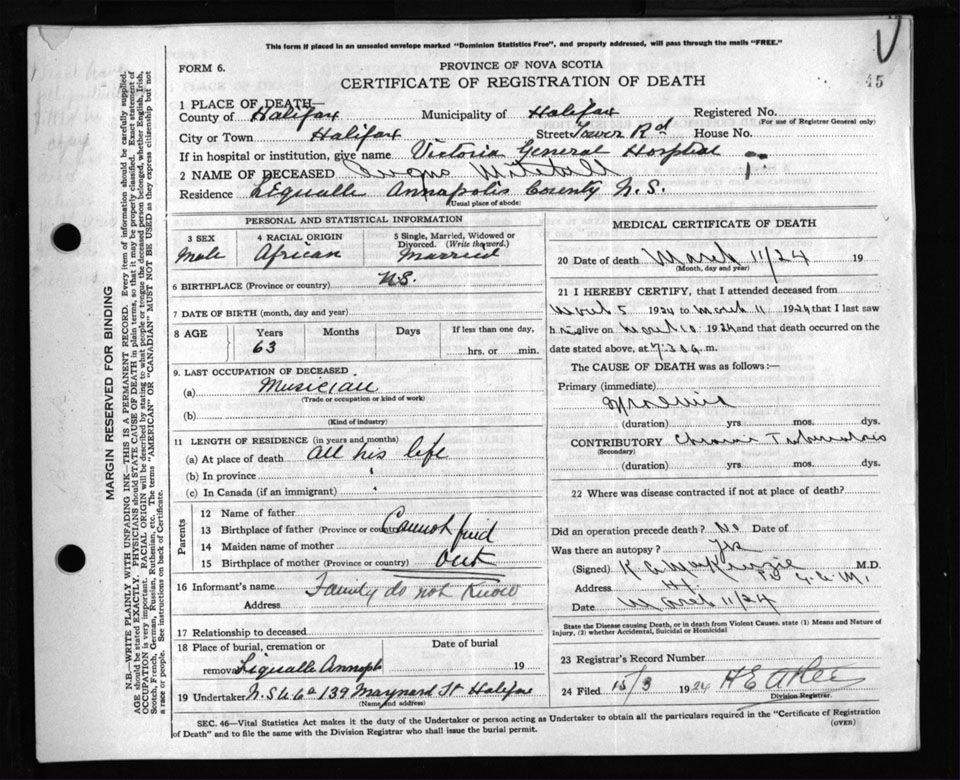 This form if placed in an unsealed envelope marked "Dominion Statistics Free", and properly addressed, will pass through the mails "FREE."
FORM 6.
PROVINCE OF NOVA SCOTIA
CERTIFICATE OF REGISTRATION OF DEATH
45
1 PLACE OF DEATH—
County of Halifax Municipality of Halifax Registered No.
(For use of Registrar General only)
City or Town Halifax Street Tower Rd House No.
If in hospital or institution, give name Victoria General Hospital
2 NAME OF DECEASED Mitchell
Residence Lequille Annapolis County N.S.
(Usual place of abode)
PERSONAL AND STATISTICAL INFORMATION
3 SEX
Male
4 RACIAL ORIGIN
African
5 Single, Married, Widowed or Divorced. (Write the word.)
Married
6 BIRTHPLACE (Province or country) N.S.
7 DATE OF BIRTH (month, day and year)
8 AGE Years Months Days If less than one day,
63 hrs. or min.
9. LAST OCCUPATION OF DECEASED
(a) Musician
(Trade or occupation or kind of work)
(b)
(Kind of industry)
11 LENGTH OF RESIDENCE (in years and months)
(a) At place of death all his life
(b) In province "
(c) In Canada (if an immigrant) "
Parents
12 Name of father
13 Birthplace of father (Province or country) Cannot find
14 Maiden name of mother
15 Birthplace of mother (Province or country) out
16 Informant's name Family do not Know
Address
17 Relationship to deceased
18 Place of burial, cremation or removal Lequille Annap Date of burial 19
19 Undertaker N.S. U. Co 139 Maynard St Halifax
(Name and address)
MEDICAL CERTIFICATE OF DEATH
20 Date of death March 11/24 19
(Month, day and year)
21 I HEREBY CERTIFY, that I attended deceased from
March 5 1924 to March 11 1924 that I last saw
h im alive on March 10 1924 and that death occurred on
date stated above, at 7.30 a m.
The CAUSE OF DEATH was as follows:—
Primary (immediate)
(duration) yrs mos. dys.
CONTRIBUTORY Chronic Tuberculosis
(Secondary)
(duration) yrs mos. dys.
22 Where was disease contracted if not at place of death?
Did an operation precede death? No Date of
Was there an autopsy? Yes
(Signed) K A MacKenzie M.D.
Address
Date March 11/24
State the Disease causing Death, or in death from Violent Causes, state (1) Means and Nature of Injury, (2) whether Accidental, Suicidal or Homicidal
23 Registrar's Record Number
24 Filed 15/3 1924
Division Registrar.
SEC. 46—Vital Statistics Act makes it the duty of the Undertaker or person acting as Undertaker to obtain all the particulars required in the "Certificate of Registration of Death" and to file the same with the Division Registrar who shall issue the burial permit.
(OVER)
MARGIN RESERVED FOR BINDING
N.B.—WRITE PLAINLY WITH UNFADING INK—THIS IS A PERMANENT RECORD. Every item of information should be carefully supplied.
AGE should be stated EXACTLY. PHYSICIANS should STATE CAUSE OF DEATH in plain terms, so that it may be properly classified. Exact statement of
OCCUPATION is very important. RACIAL ORIGIN will be described by stating to what people or tongue the deceased person belonged, whether English, Irish,
Scotch, French, German, Russian, Ruthenian, etc. The terms "AMERICAN" OR "CANADIAN" MUST NOT BE USED as they express citizenship but not
a race or people. See instructions on back of Certificate.